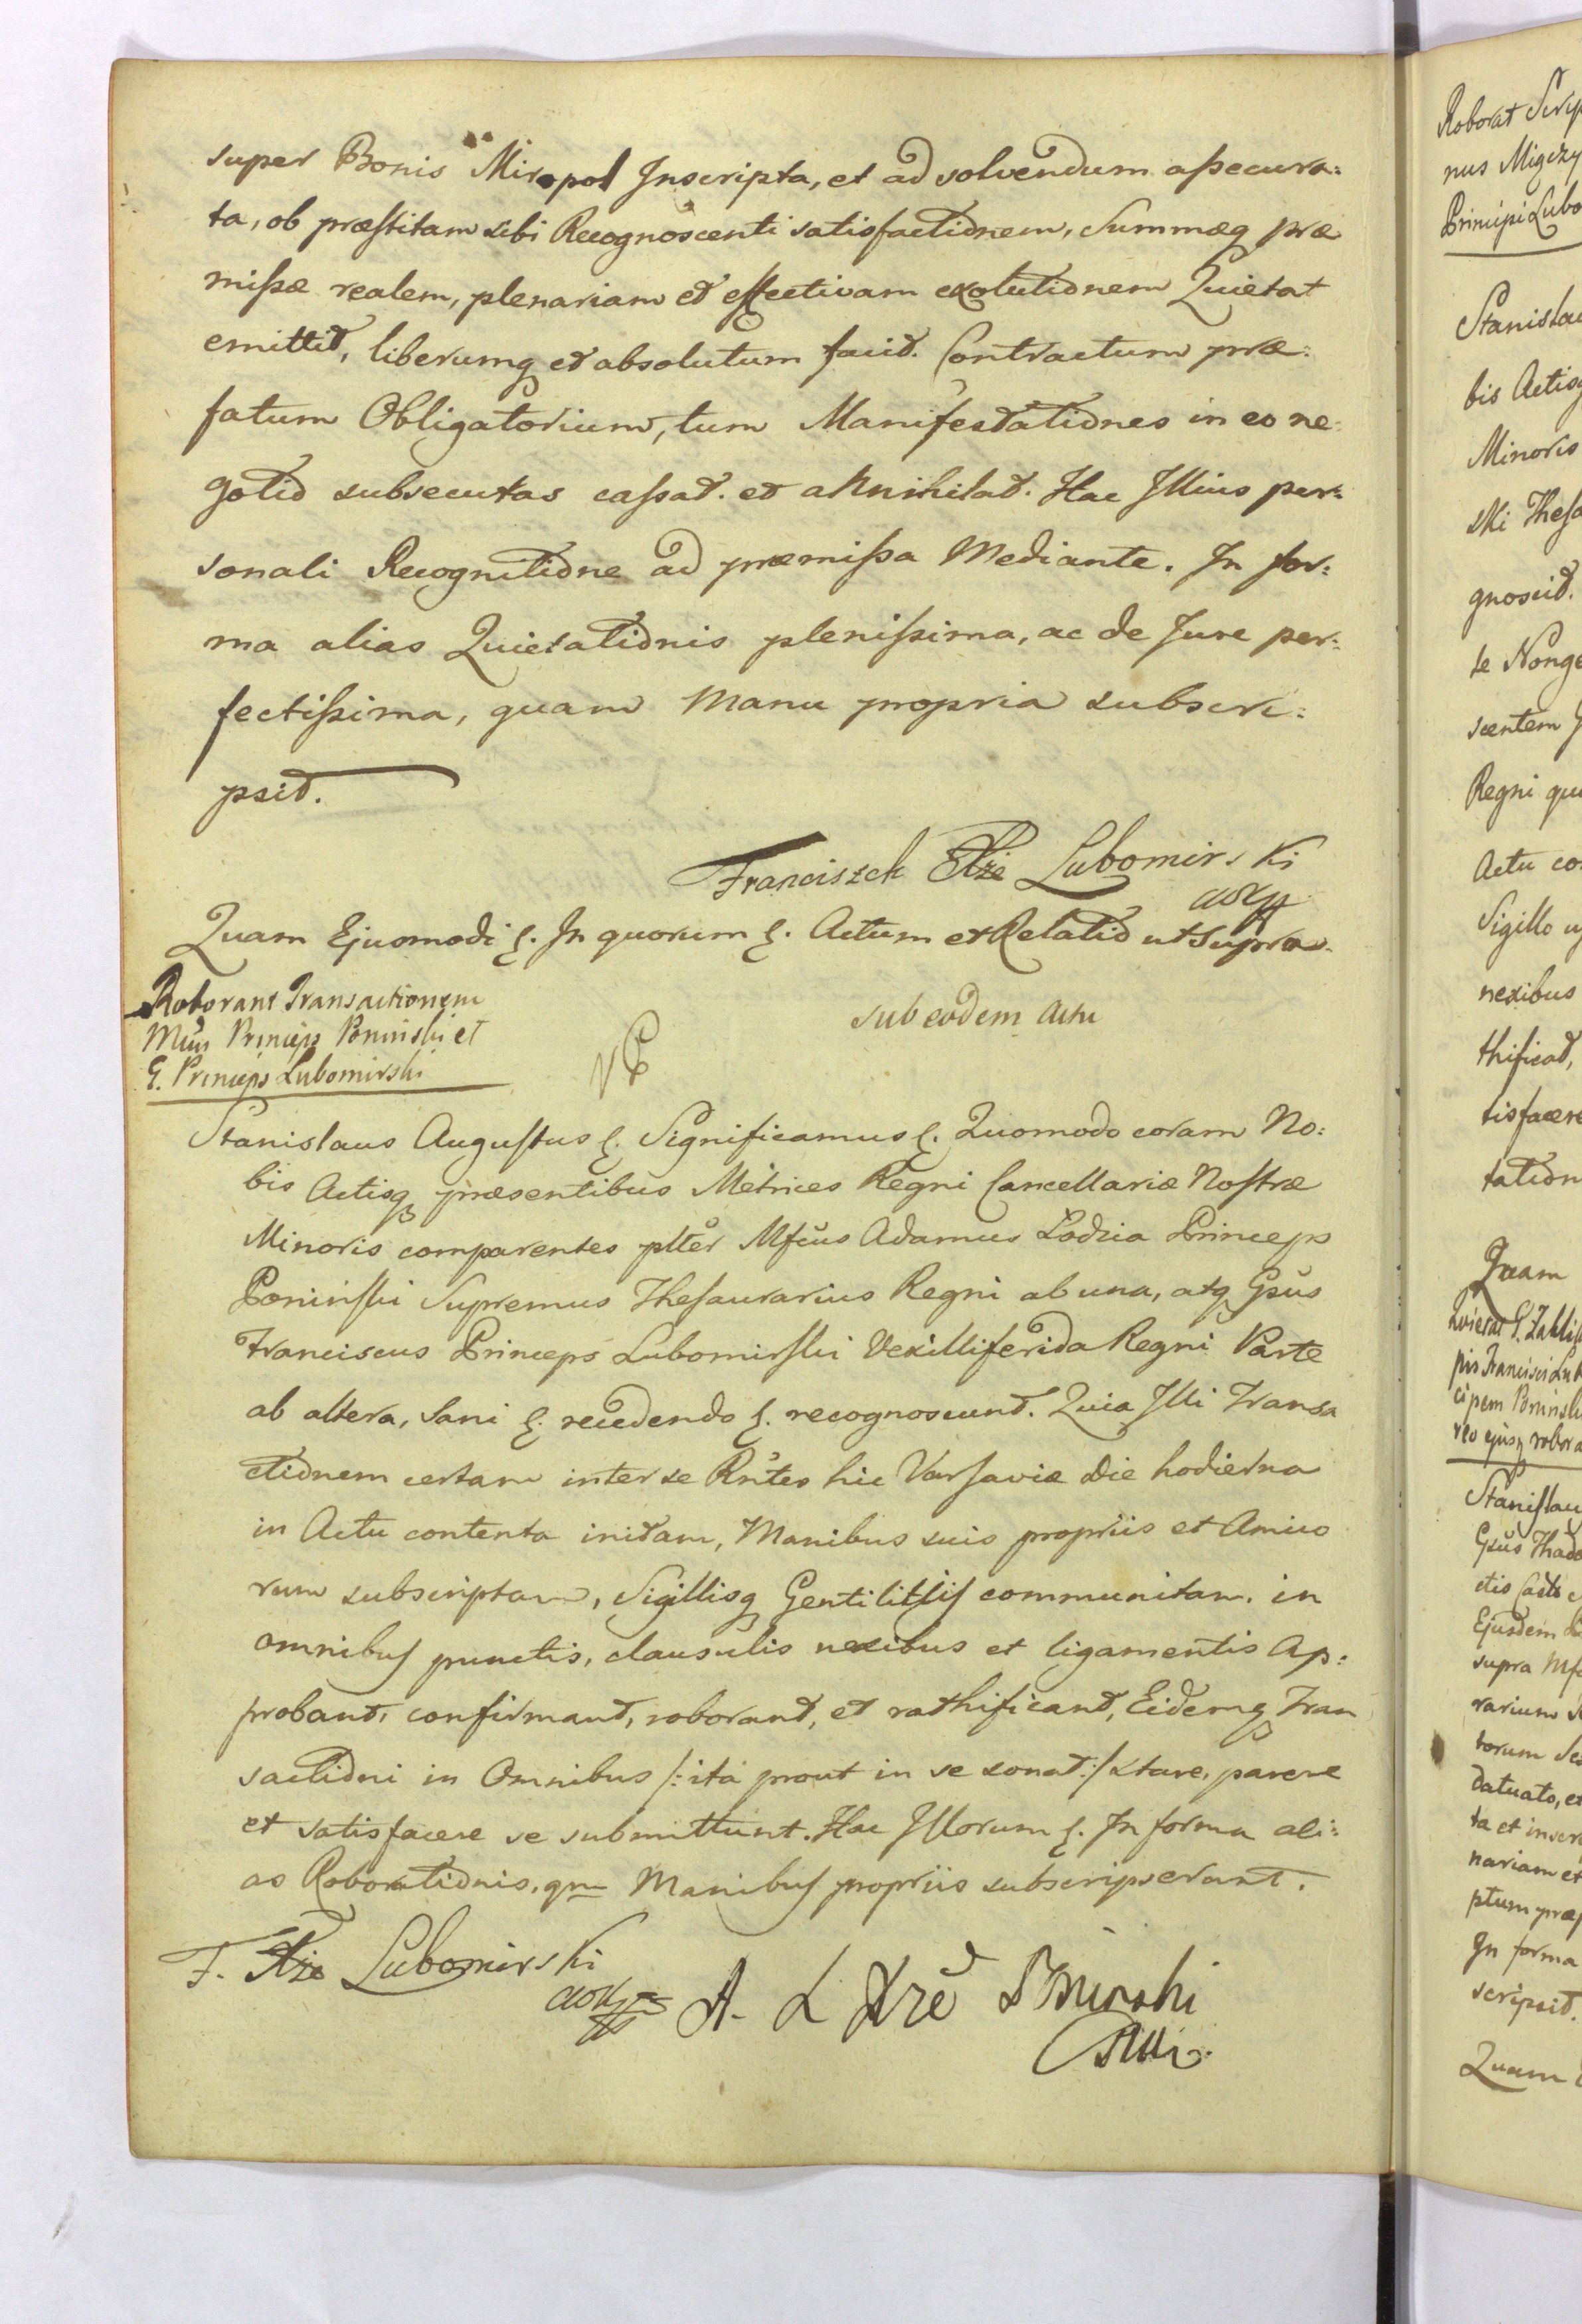 super Bonis Miropol Inscripta, et ad solvendum assecura:
ta, ob præstitam sibi Recognoscenti satisfactionem, Summæq præ
missæ realem, plenariam et effectivam exolutionem Quietat
emittit, liberumq et absolutum facit. Contractum præ:
fatum Obligatorium, tum Manifestationes in eo ne:
gotio subsecutas cassat. et aNnihilat. Hac Illius per:
sonali Recognitione ad præmissa Mediante. In for:
ma alias Quietationis plenissima, ac de Jure per:
fectissima, quam Manu propria subscri:
psit.
Franciszek Xże Lubomirski
Quam Ejusmodi &. In quorum &. Actum et Relatio ut supra.
Roborant Transactionem
Princeps Poninski et
G. Princeps Lubomirski
sub eodem Actu
Stanislaus Augustus &. Significamus &. Quomodo coram No:
bis Actisq præsentibus Metrices Regni Cancellariæ Nostræ
Minoris comparentes plter Mfcus Adamus Lodzia Princeps
Poninski Supremus Thesaurarius Regni ab una, atq Gsus
Franciscus Princeps Lubomirski Vexilliferida Regni Parte
ab altera, Sani &. recedendo &. recognoscunt. Quia Illi Transa
ctionem certam inter se Rntes hic Varsaviæ die hodierna
in Actu contenta initam, Manibus suis propriis et Amico
rum subscriptam, Sigillisq Gentilitiis communitam. in
omnibus punctis, clausulis nexibus et ligamentis Ap:
probant, confirmant, roborant, et rathificant, Eidemq Tran
sactioni in Omnibus /: ita prout in se sonat :/ stare, parere
et satisfacere se submittunt. Hac Illorum &. In forma ali:
as Roborationis, qm Manibus propriis subscripserunt.
F. Xże Lubomirski
A. L Xże Poninski
Roborat
nus
Principi
Stanislau
bis Actisq
Minoris
ski Thesa
gnoscit.
te
scentem
Regni
Actu co
Sigillo
nexibus
thificat,
tisfacere
tation
Quam
Quietat
pis Francisci
cipem Poninski
Stanislau
Gsus
Ejusdem
supra
rarium
torum
datuato, et
ta et
nariam et
ptum
In forma
scripsit.
Quam